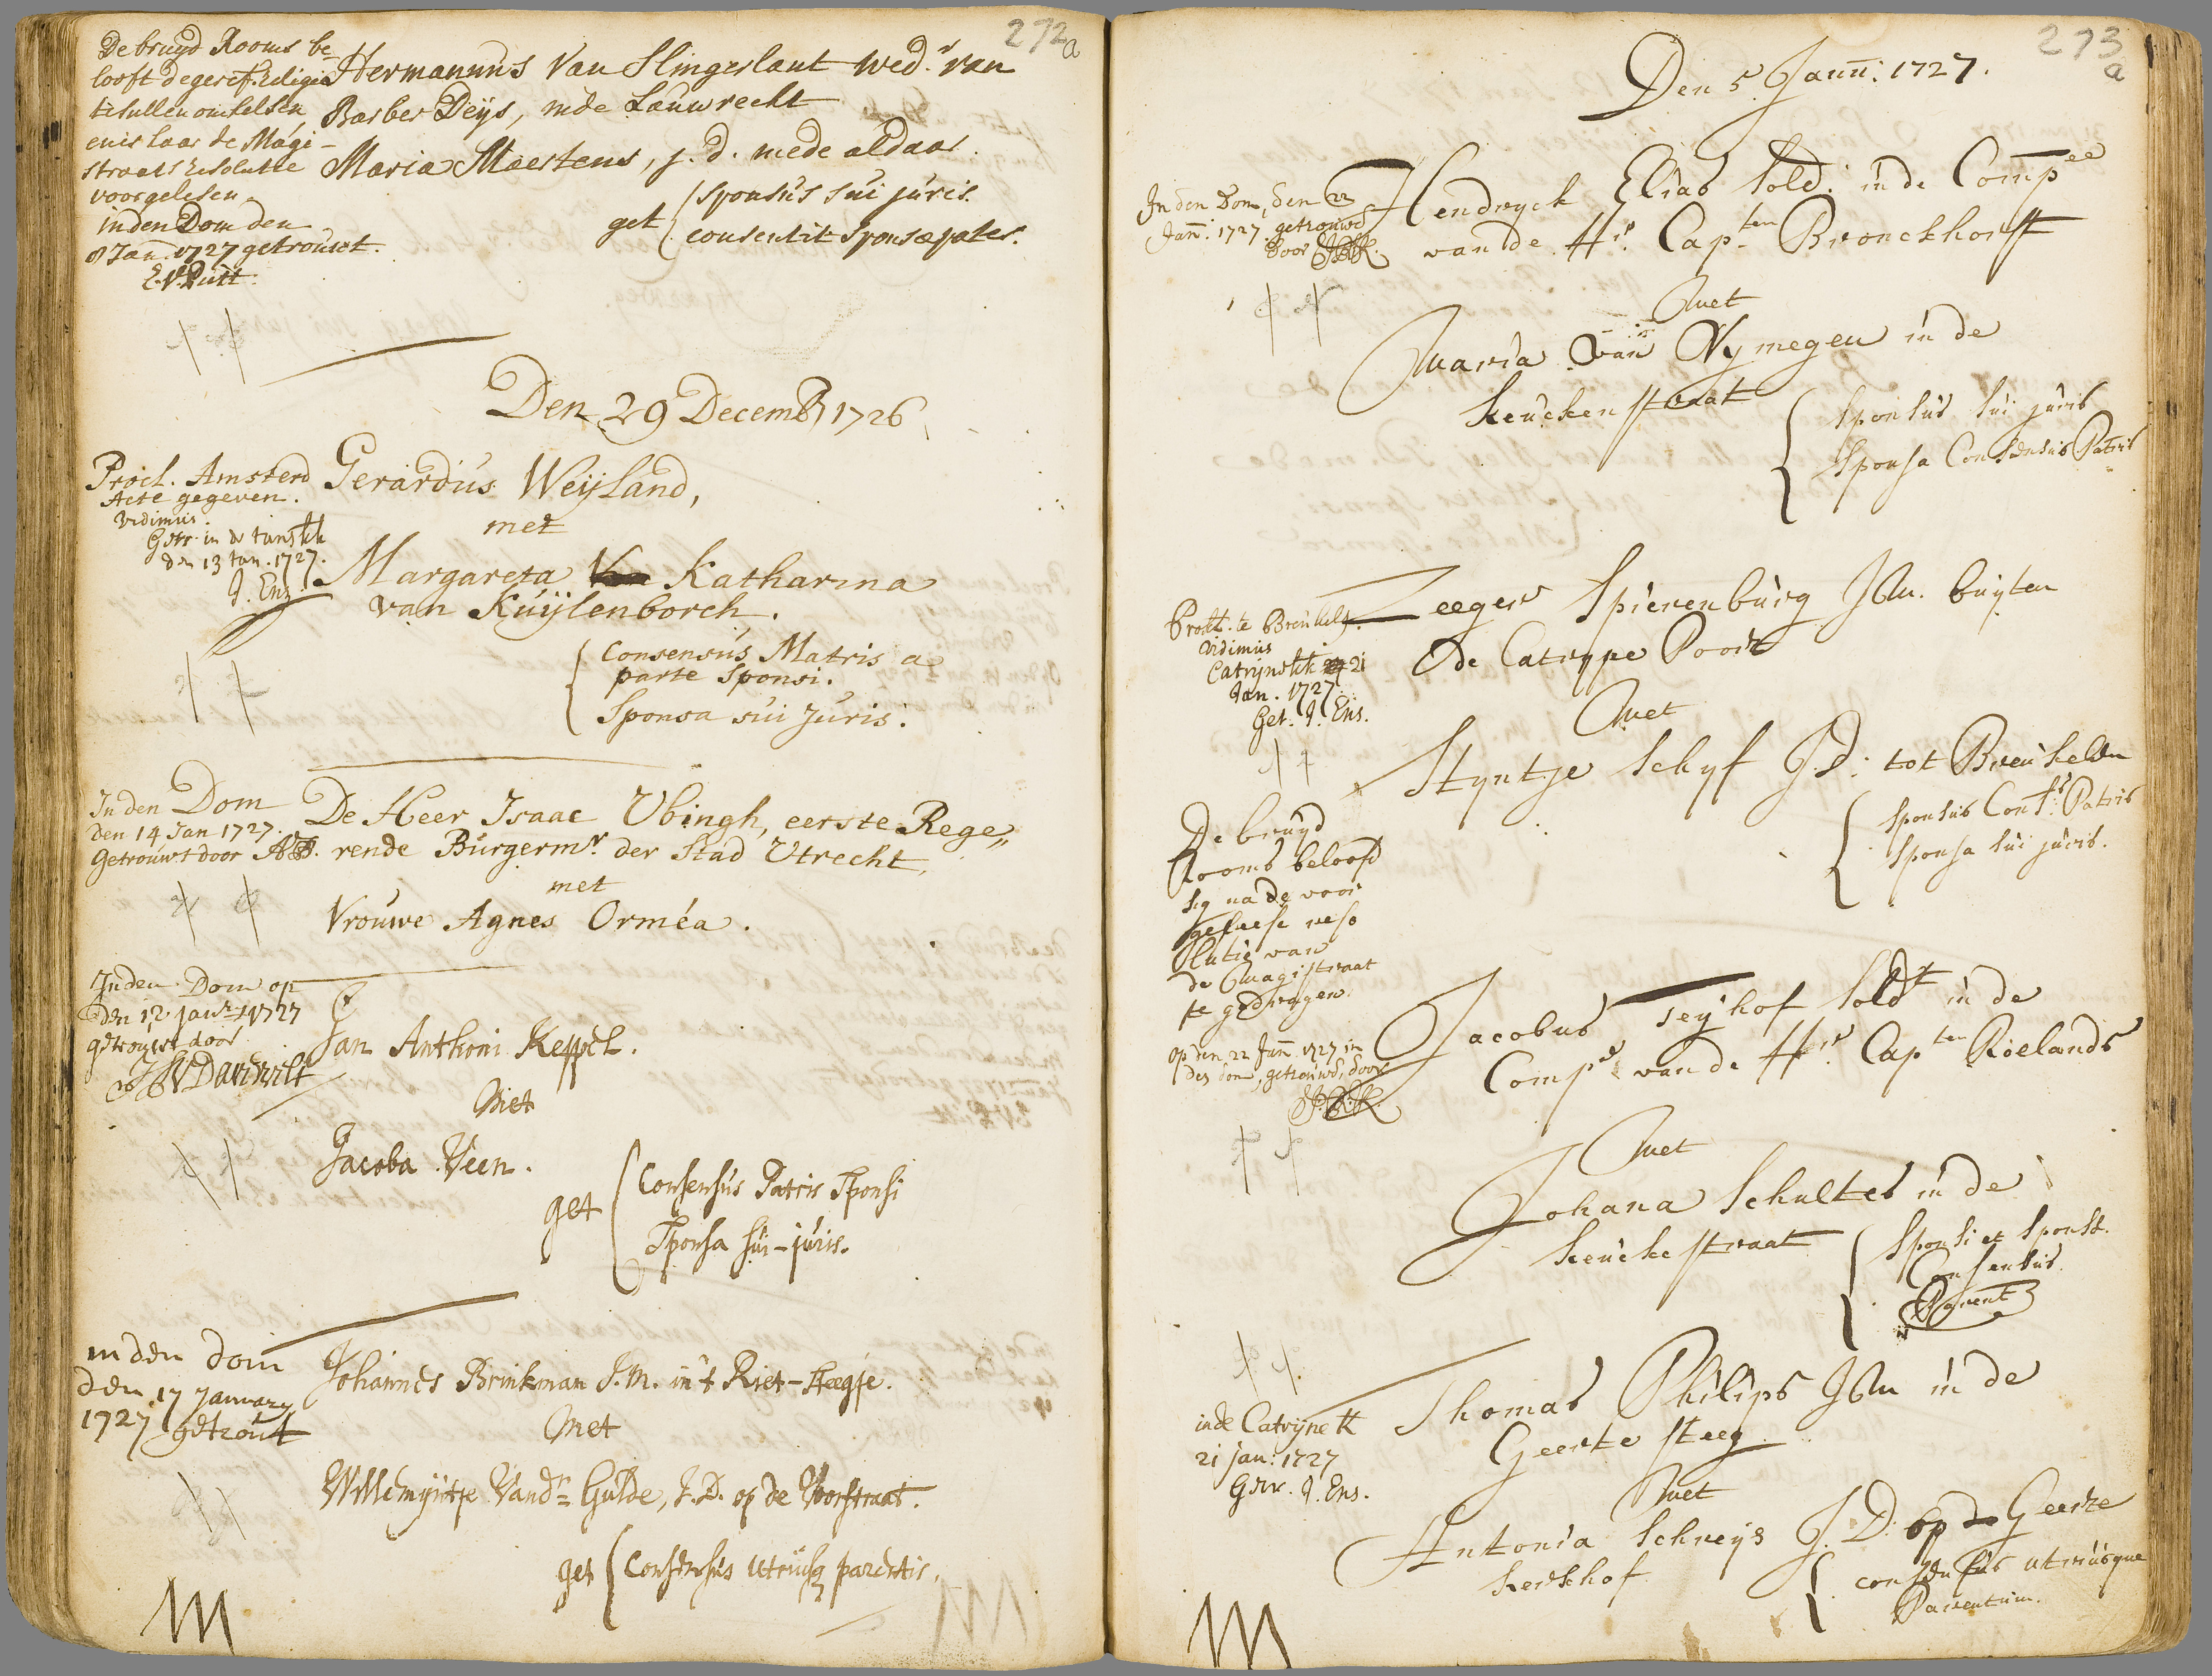 272
a
De bruyd Rooms be-
looft de geref. Religie
te sullen omhelsen
en is haar de Magi-
straats Resolutie
voorgelesen
in den Dom den
8 Jan. 1727 getrouwt.
E. V. Putt.
Hermannus Van Slingerlant wed.r van
Barber Deys, inde Lauwrecht
Maria Maertens, j. d. mede aldaar.
get sponsus sui juris.
consentit sponsae pater.
Den 29 Decemb 1726
Procl. Amsterd
Acte gegeven.
vidimus.
Getr. in de
den 13 Jan. 1727.
J. Ens.
Gerardus Weyland,
met
Margareta Katharina
van Kuylenborch.
Consensus Matris a
parte Sponsi.
Sponsa sui Juris.
In den Dom
den 14 Jan 1727.
Getrouwt door
De Heer Isaac Ubingh, eerste Rege„
rende Burgerm.r der Stad Utrecht,
met
Vrouwe Agnes Orméa.
In den Dom op
den 12 Jan.r 1727
getrouwt door
Jan Anthoni Keppel.
Met
Jacoba Veen.
get Consensus Patris Sponsi
Sponsa sui-juris.
in den dom
den 17 January
1727 getrout
Johannes Brinkman J.M. in't Riet-steegje.
Met
Willemyntje Vand.r Gulde, J.D. op de Voorstraat.
get Consensus utriusq parentis.
273
a
Den 5 Jann: 1727.
In den Dom, den 22
Jann: 1727 getrouwd
door
Hendryck Elias sold: in de Comp.ee
van de H.r Cap.ten Bronckhorst
Met
Maria van Nymegen in de
keucken straat
Sponsus sui juris
Sponsa Consensus Patris
Procl. te Breukele.
vidimus
Catrynekk 21
Jan. 1727.
Get. J. Ens.
Zeeger Spierenburg JM. buyten
de Catryne Poort
Met
Styntje Schyf J.D: tot Breukelen
Sponsus Cons:s Patris
Sponsa sui juris.
De bruyd
Rooms beloofd
sig na de voor
gelese reso
lutie van
de Magistraat
te gedragen.
op den 22 Jann 1727 in
den dom, getrouwd, door
Jacobus Teyhof sold.t in de
Comp.e van de H.r Cap.ten Roelands
Met
Johana Schultes in de
keucke straat
Sponsi et Sponsae
Consensus
Parent
in de Catryne k
21 jan: 1727
Getr. J. Ens.
Thomas Philips JM in de
Geerte steeg
Met
Antonia Schreys J.D. op de Geerte
kerkhof
consensus utriusque
Parentum.